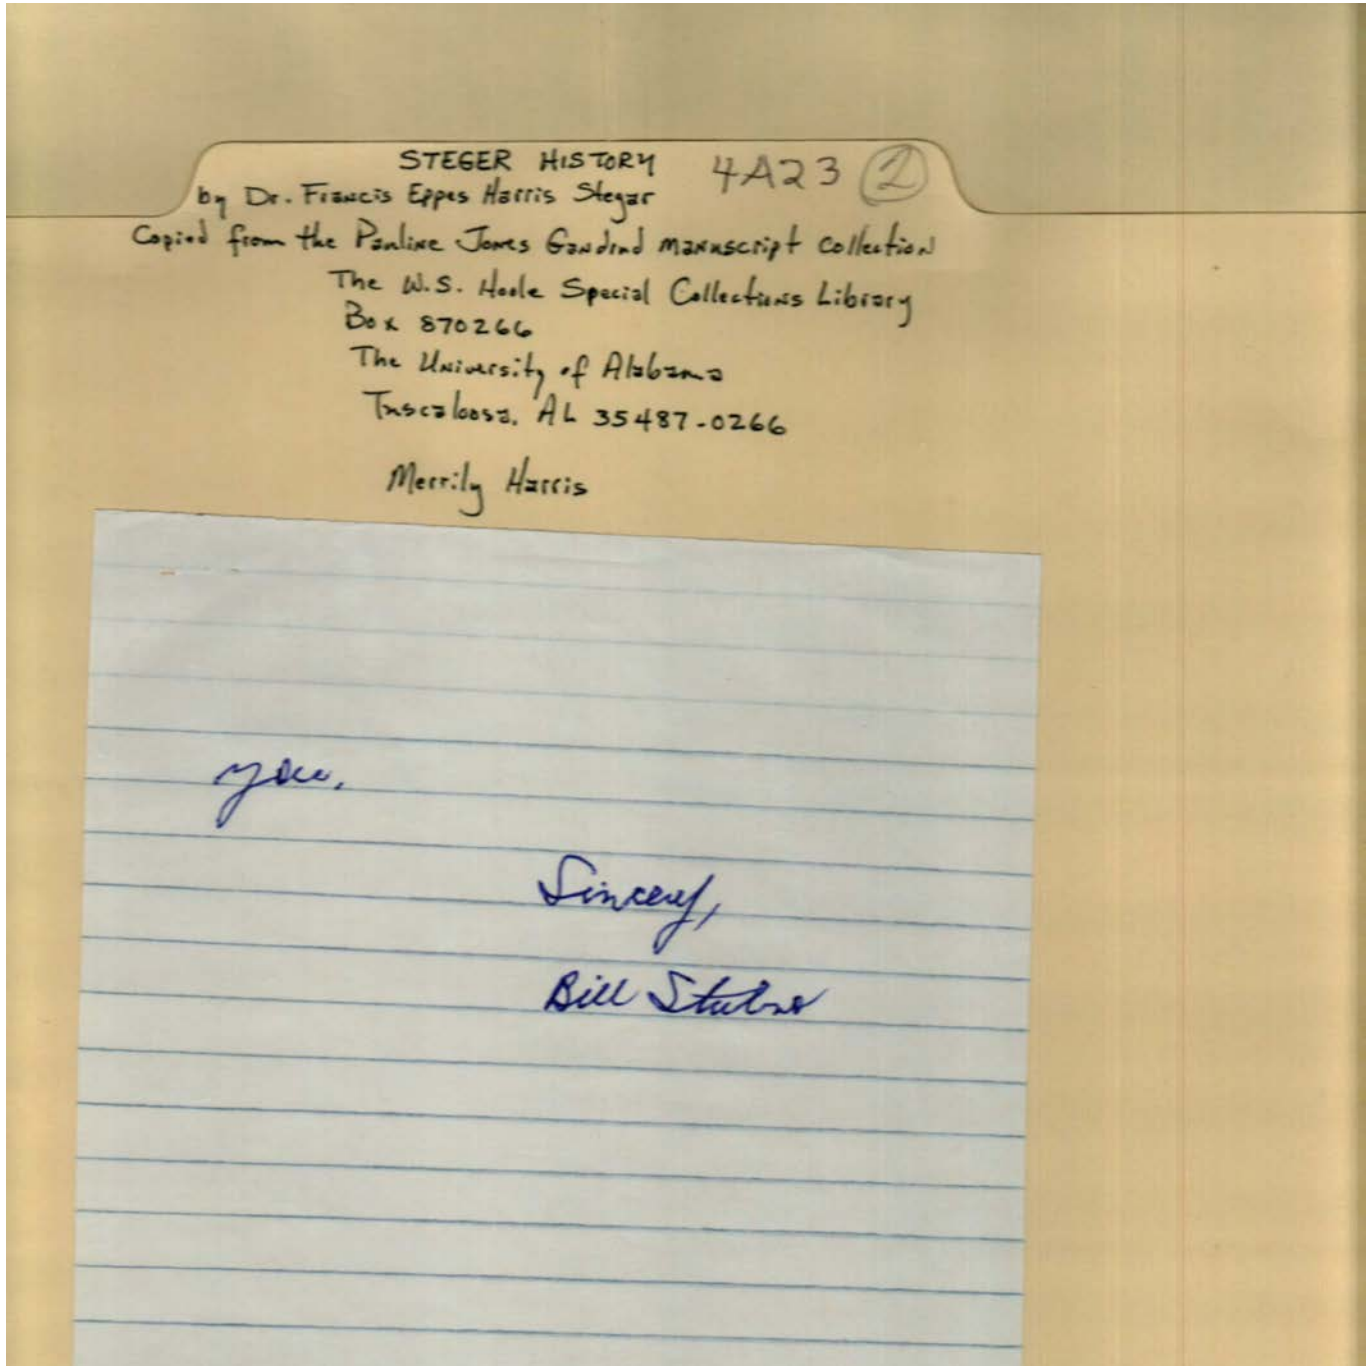 STEGER HISTORY 4A23 2
by Dr. Francis Eppes Harris Stegar
Copied from the Pauline Jones Gandrud manuscript collection
The W.S. Hoole Special Collections Library
Box 870266
The University of Alabama
Tuscaloosa, AL 35487-0266
Merrily Harris
you.
Sincerly,
Bill